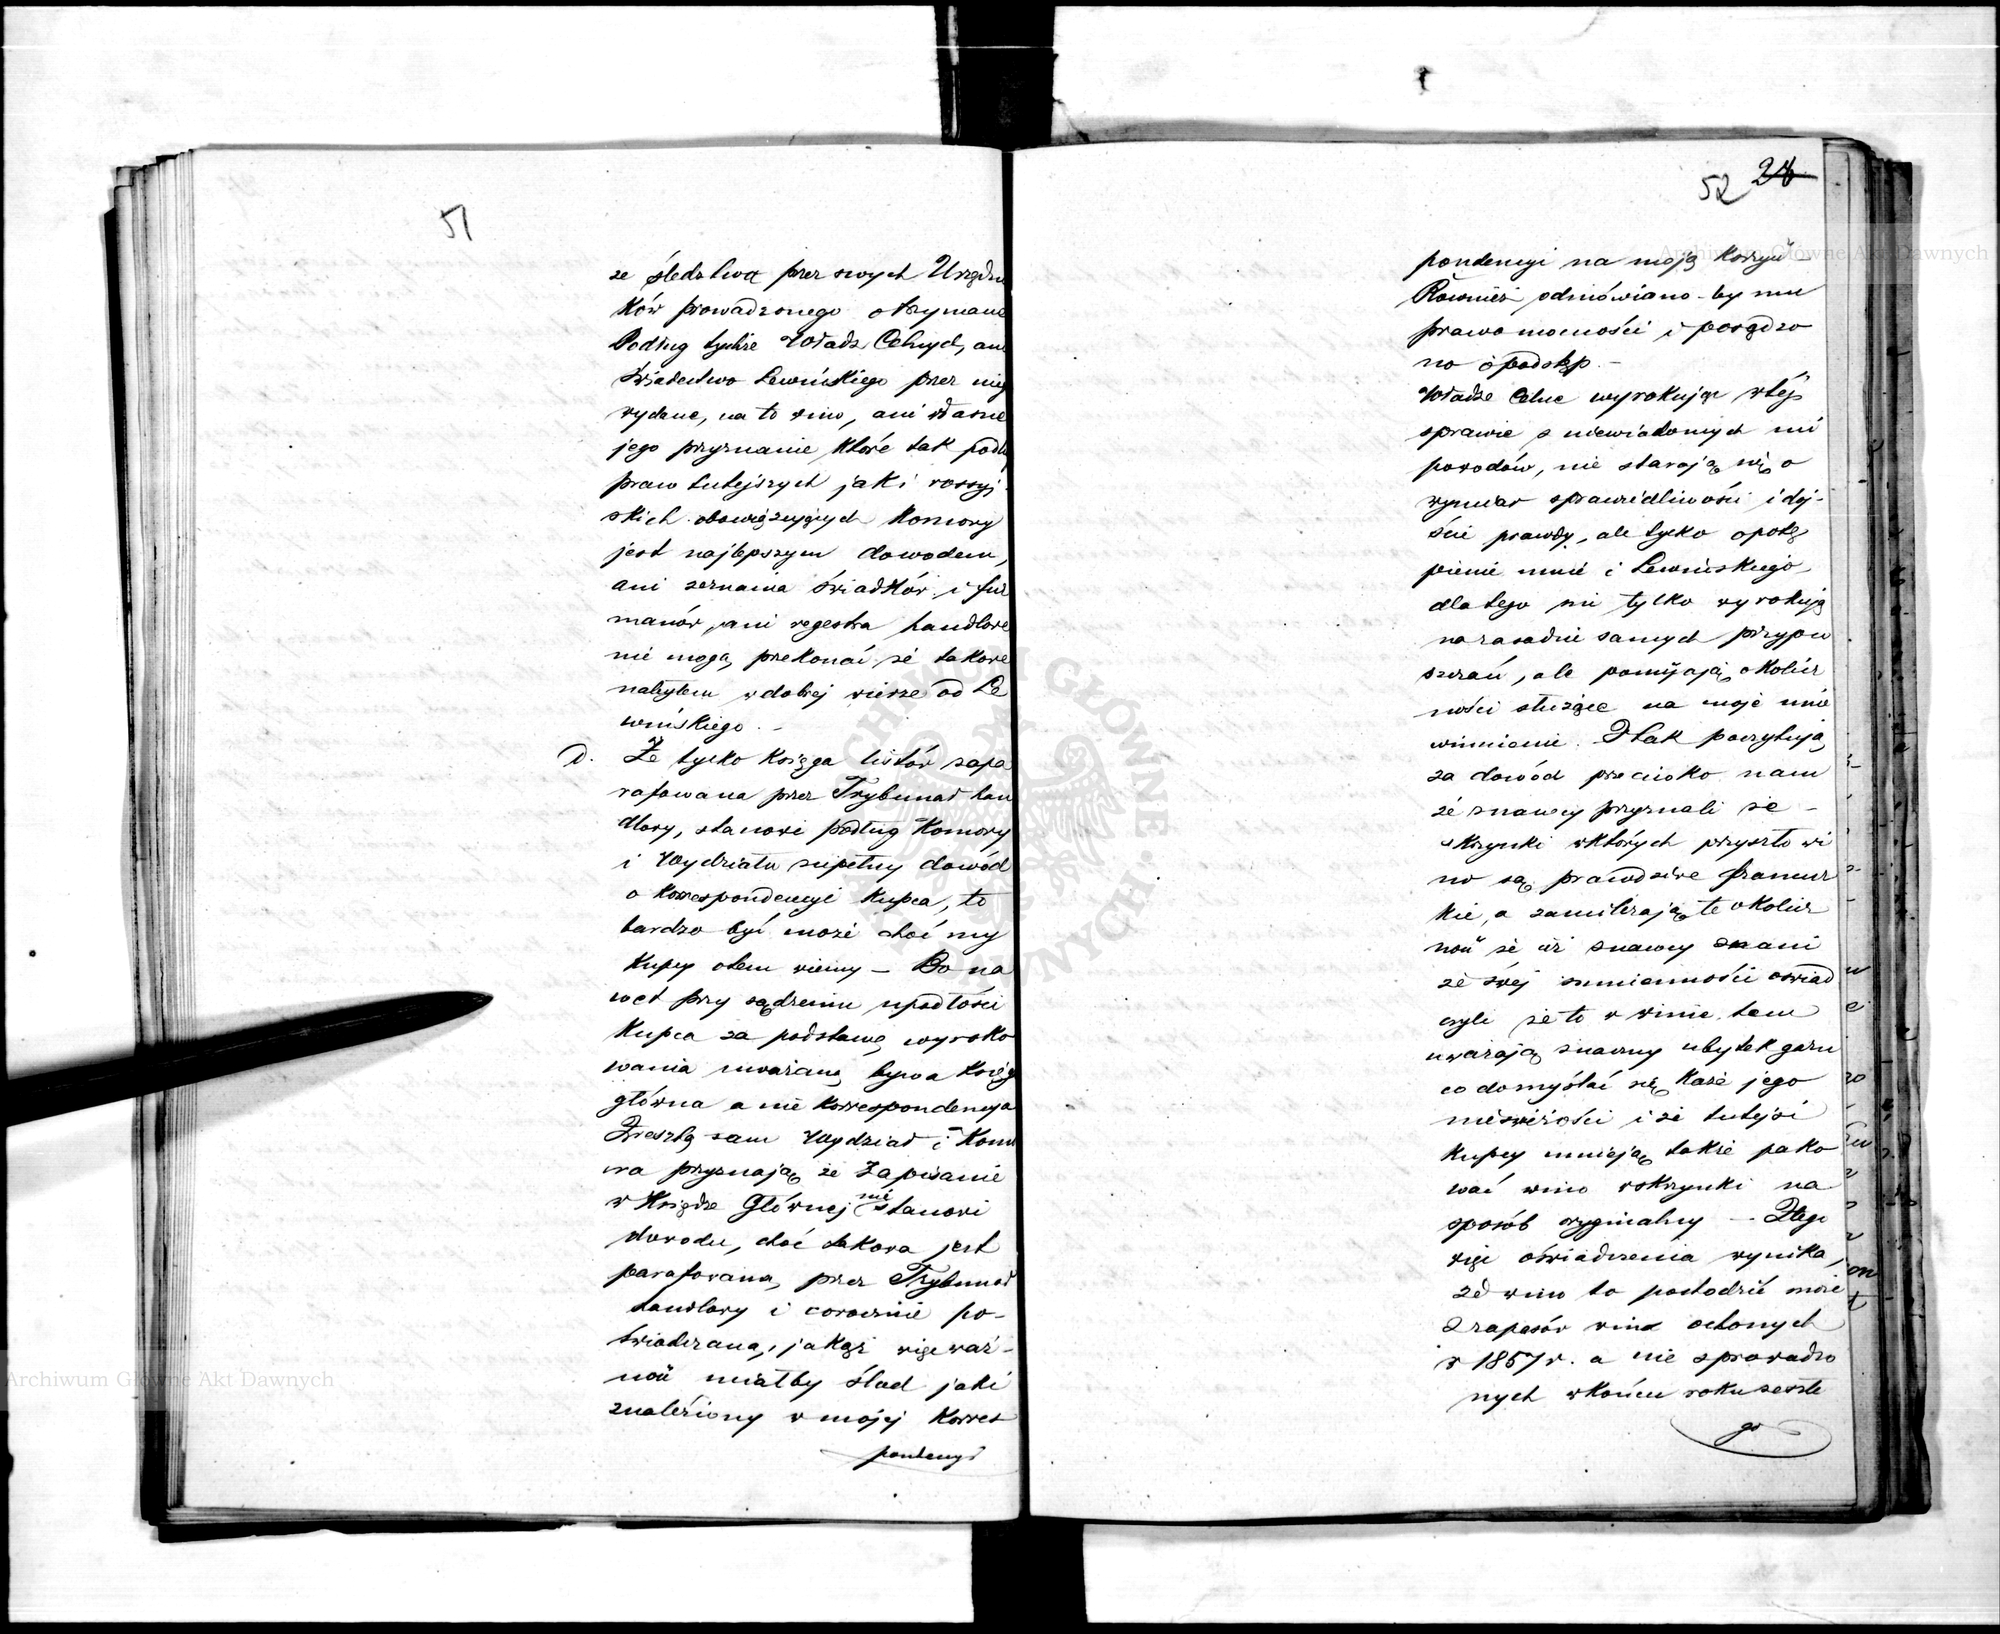 51
ze śledztwa przez swych Urzędni
ków prowadzonego otrzymane
Podług tychże Władz Celnych, ani
świadectwo Lewińskiego przez nieg
wydane, na to wino, ani własne
jego przyznanie, które tak podłu
praw tutejszych jak i rossyj
skich obowięzujących Komory
jest najlepszym dowodem,
ani zeznania świadków i fur
manów, ani regestra handlowe
nie mogą przekonać że takowe
nabyłem w dobrej wierze od Le
wińskiego. –
D. Że tylko księga listów zapa
rafowana przez Trybunał han
dlowy, stanowi podług Komory
i Wydziału zupełny dowód
o korrespondencyi kupca, to
bardzo być może choć my
kupcy o tem wiemy – Bo na
wet przy sądzeniu upadłości
kupca za podstawę wyroko
wania uważaną bywa księg
główna a nie korrespondencya
Zresztą sam Wydział i Komo
ra przyznają że zapisanie
w Księdze Głównej nie stanowi
dowodu, choć takowa jest
parafowaną przez Trybunał
handlowy i corocznie po-
świadczaną, jakąż więc waż-
ność miałby ślad jaki
znaleziony w mojej korres
pondencyi
52 28
pondencyi na moją korzyść –
Również odmówiano-by mu
prawomocności i posądzo
no o podstęp. –
Władze Celne wyrokując w tej
sprawie z niewiadomych mi
powodów, nie starają się o
wymiar sprawiedliwości i doj-
ście prawdy, ale tylko o potę
pienie mnie i Lewińskiego,
dlatego nie tylko wyrokują
na zasadzie samych przypu
szczań, ale pomijają okolicz
ności służące na moje unie
winnienie. I tak poczytują
za dowód przeciwko nam
że znawcy przyznali że –
skrzynki w których przyszło wi
no są prawdziwe francuz
kie, a zamilczają te okolicz
ność że ciż znawcy znani
ze swej sumienności oświad
czyli że to w winie tem
uważają znaczny ubytek gazu
co domyślać się każe jego
nieświeżości i że tutejsi
kupcy umieją także pako
wać wino w skrzynki na
sposób oryginalny – Z tego
więc oświadczenia wynika,
że wino to pochodzić może
z zapasów wina oclonych
w 1857 r. a nie sprowadzo
nych w końcu roku zeszłe
go
Archiwum Główne Akt Dawnych
Archiwum Główne Akt Dawnych
ARCHIWUM GŁÓWNE AKT DAWNYCH